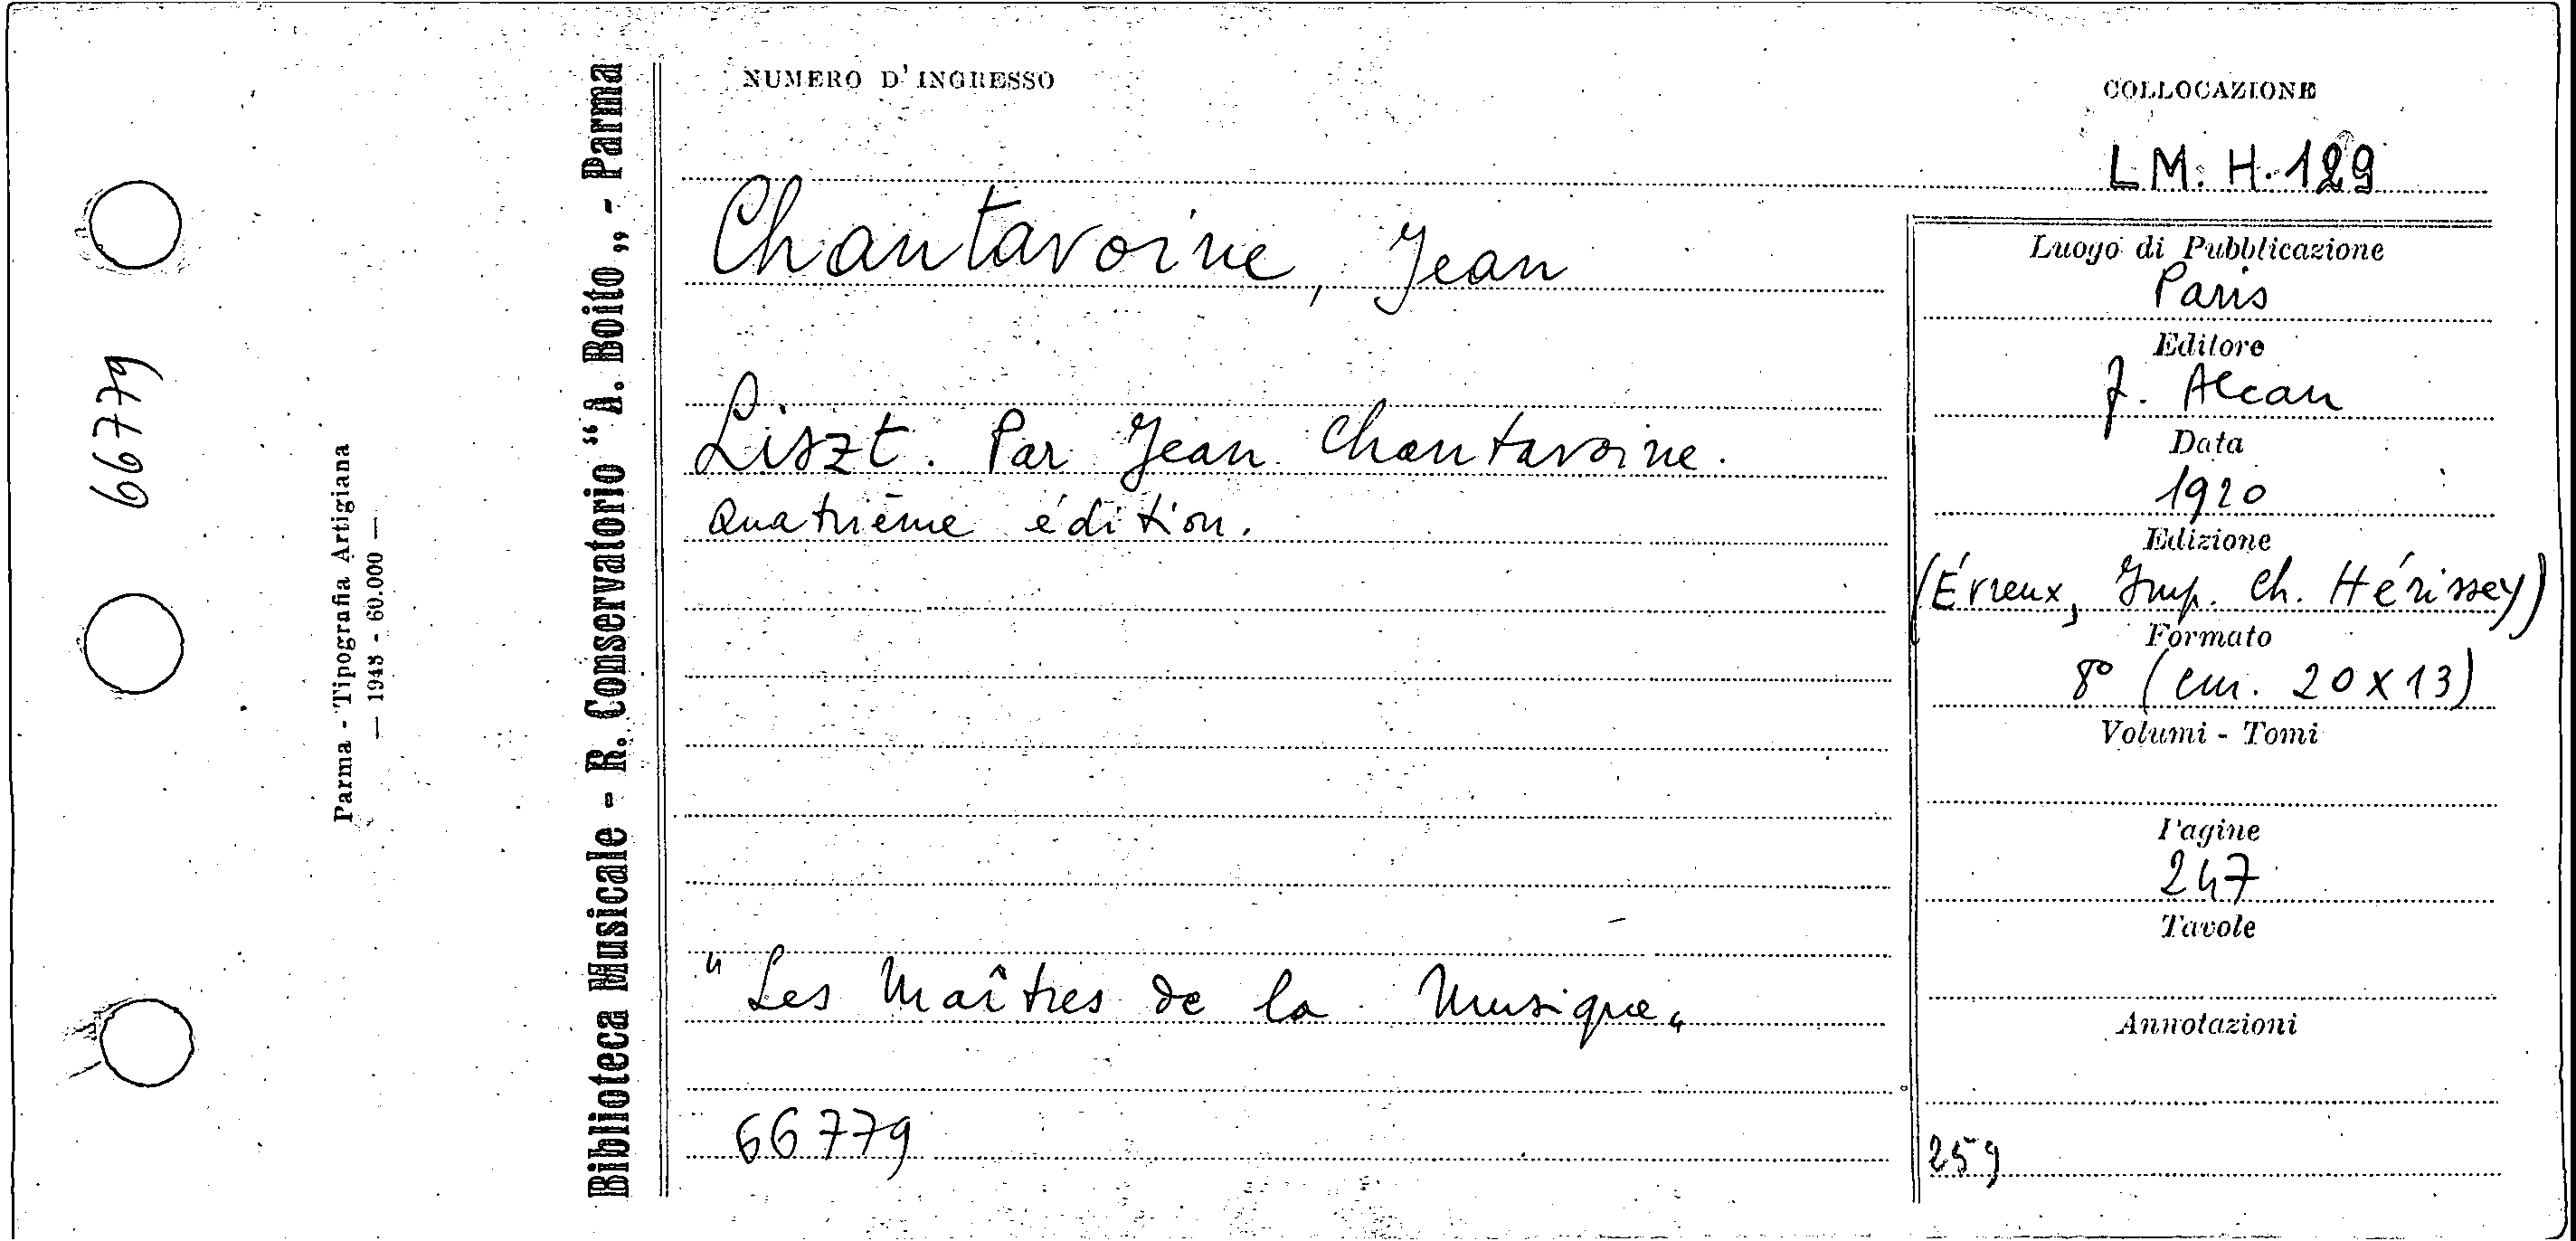 NUMERO D'INGRESSO
COLLOCAZIONE
LM. H. 129
Chantavoine, Jean
Liszt. Par Jean Chantavoine.
Quatrième édition.
"Les Maîtres de la Musique„
66779
Luogo di Pubblicazione
Paris
Editore
F. Alcan
Data
1920
Edizione
(Évreux, Imp. Ch. Hérissey)
Formato
8° (cm. 20x13)
Volumi - Tomi
Pagine
247
Tavole
Annotazioni
259
Biblioteca Musicale - R. Conservatorio "A. Boito„ - Parma
Parma - Tipografia Artigiana
— 1943 - 60.000 —
66779